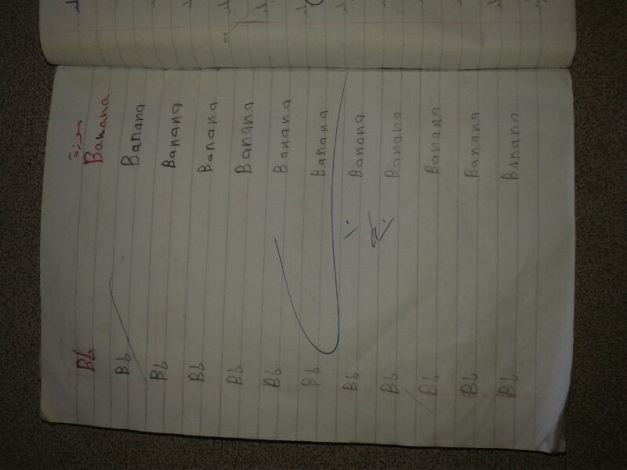 Bb Banana
Bb Banana
Bb Banana
Bb Banana
Bb Banana
Bb Banana
Bb Banana
Bb Banana
Bb Banana
Bb Banana
Bb Banana
Bb Banana